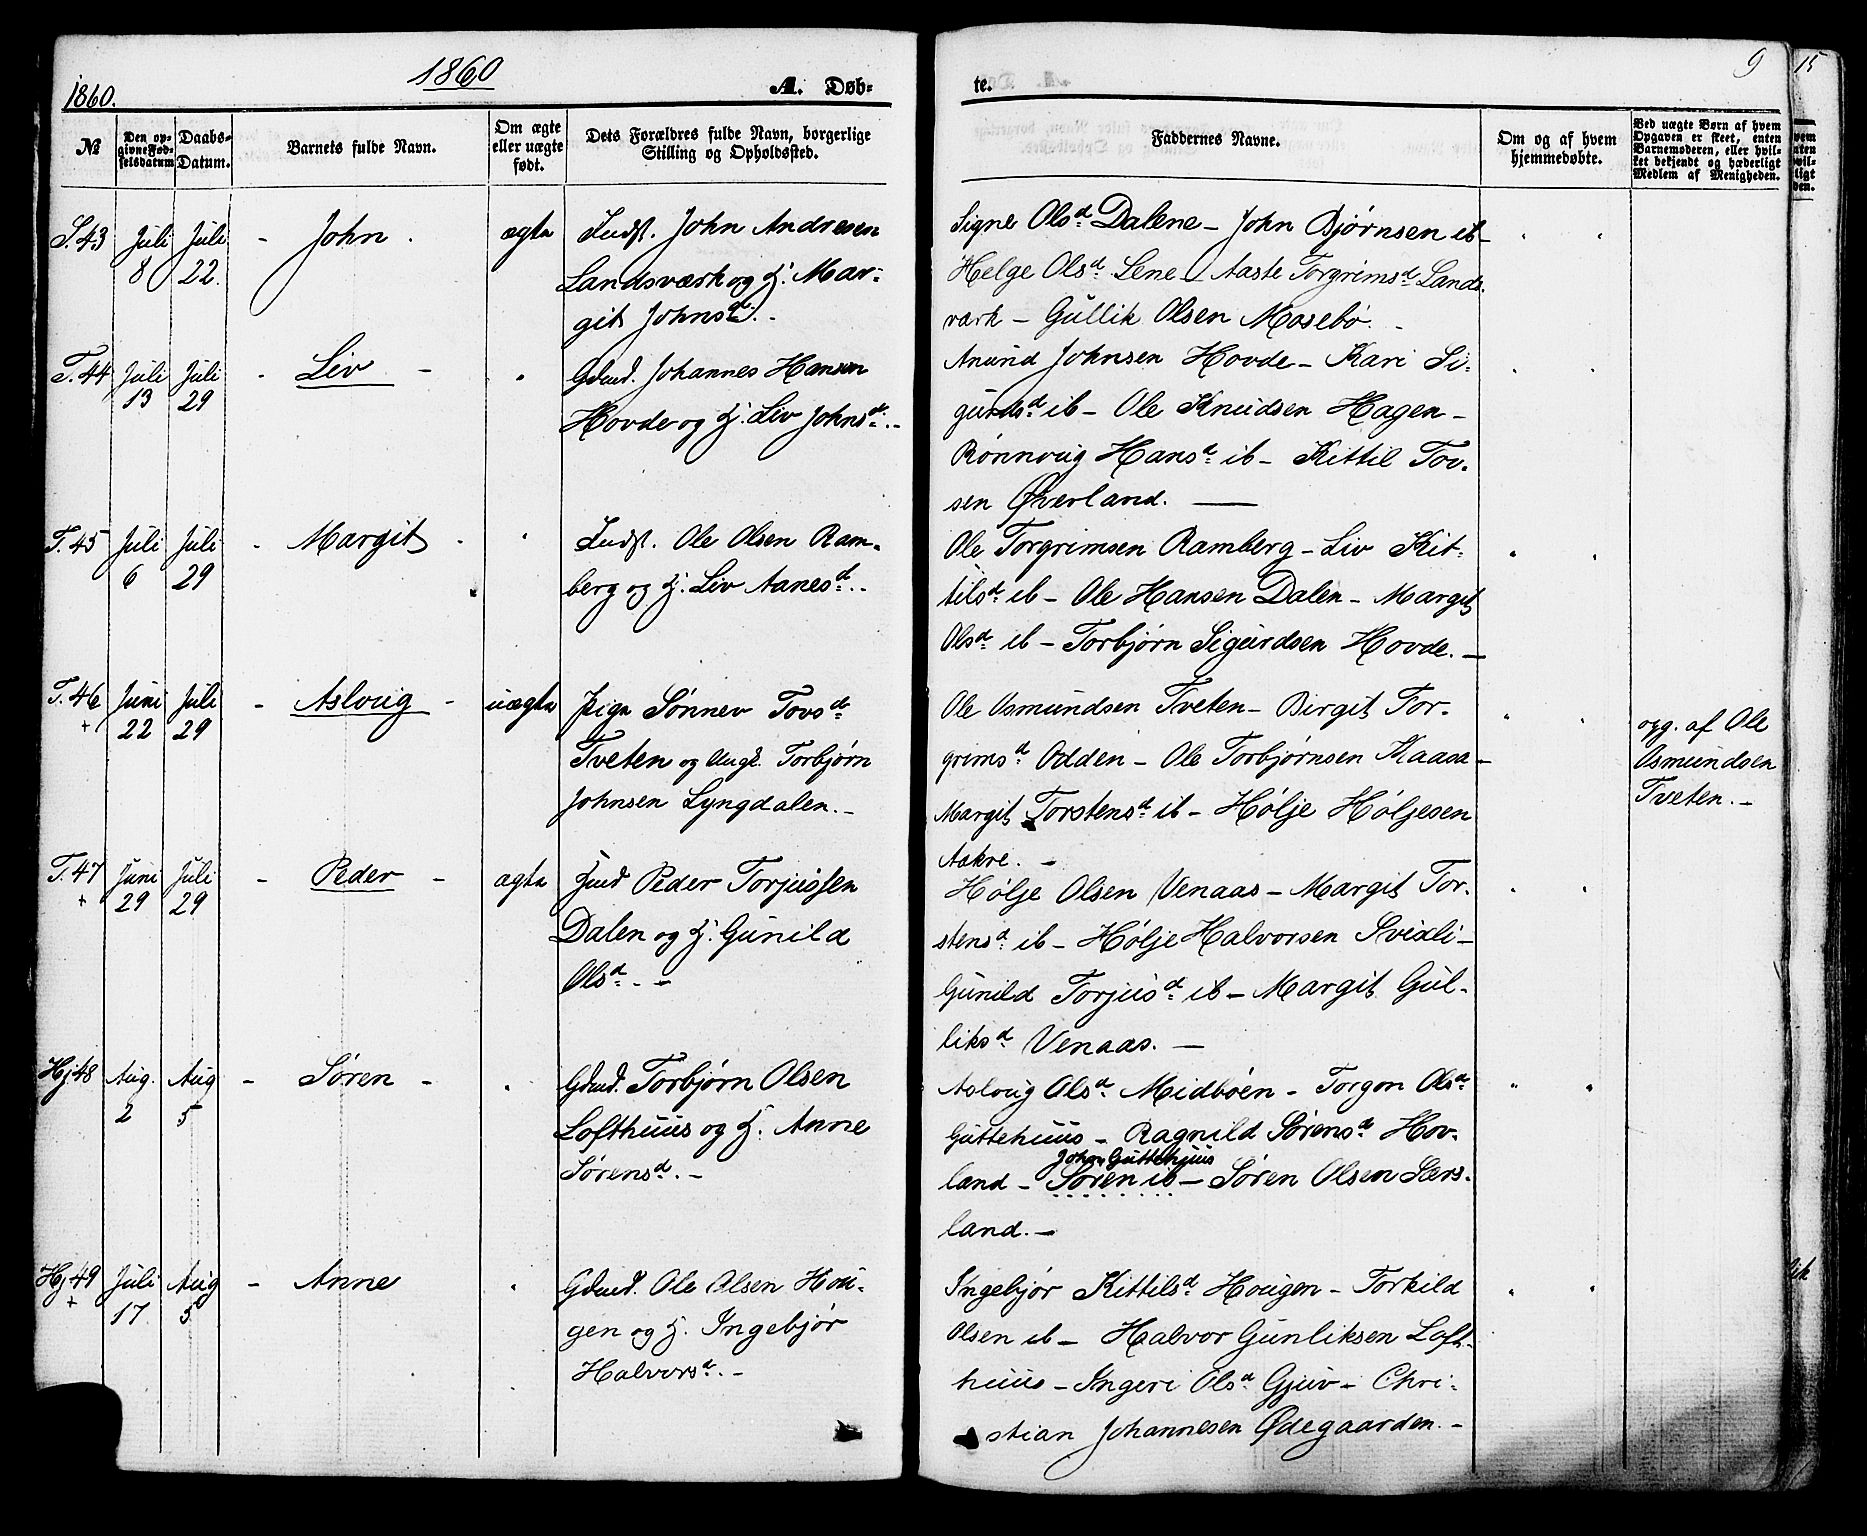 1860.
1860
A. Døb-
te.
9
15
№
Den op-
givne Fød-
selsdatum
Daabs-
Datum.
Barnets fulde Navn.
Om ægte
eller uægte
født.
Dets Forældres fulde Navn, borgerlige
Stilling og Opholdssted.
Faddernes Navne.
Om og af hvem
hjemmedøbte.
Ved uægte Børn af hvem
Opgaven er skeet, enten
Barnemoderen, eller hvil-
ket bekjendt og hæderligt
Medlem af Menigheden.
S. 43 Juli 8 Juli 22. - John. ægte
Indst. John Andresen
Landsværk og H. Mar-
git Johnsd. -
Signe Olsd Dalene - John Bjørnsen ib -
Helge Olsd Lene - Aaste Torgrimsd Lands-
værk - Gullik Olsen Mosebø. -
T. 44 Juli 13 Juli 29 - Liv - "
Gdmd. Johannes Hansen
Hovde og H. Liv Johnsd. -
Anund Johnsen Hovde - Kari Si-
gurdsd ib - Ole Knudsen Hagen -
Rønnoug Hansd ib - Kittil Tov-
sen Øverland. —
T. 45 Juli 6 Juli 29 - Margit - "
Indst. Ole Olsen Ram-
berg og H. Liv Aanesd. -
Ole Torgrimsen Ramberg - Liv Kit-
tilsd ib - Ole Hansen Dalen - Margit
Olsd ib - Torbjørn Sigurdsen Hovde. -
T. 46 + Juni 22 Juli 29 - Asloug - uægte
Pige Sønnev Tovsd
Tveten og Ungk. Torbjørn
Johnsen Lyngdalen. -
Ole Osmundsen Tveten - Birgit Tor-
grimsd Odden - Ole Torbjørnsen Kaasa -
Margit Torstensd ib - Hølje Høljesen
Aakre. -
opg. af Ole
Osmundsen
Tveten. -
T. 47 + Juni 29 Juli 29 - Peder - ægte
Hmd Peder Torjussen
Dalen og H. Gunild
Olsd. -
Hølje Olsen Venaas - Margit Tor-
stensd ib - Hølje Halvorsen Svixli -
Gunild Torjusd ib - Margit Gul-
liksd Venaas. —
Hj 48 Aug. 2 Aug 5 - Søren - "
Gdmd. Torbjørn Olsen
Lofthuus og H. Anne
Sørensd. -
Asloug Olsd Midbøen - Torgon Olsd
Guttehuus - Ragnild Sørensd Hov-
John Guttehuus
land - Søren ib - Søren Olsen Sers-
land. -
Hj 49 + Juli 17 Aug 5 - Anne "
Gdmd. Ole Olsen Hou-
gen og H. Ingebjør
Halvorsd. -
Ingebjør Kittilsd Hougen - Torkild
Olsen ib - Halvor Gunliksen Loft-
huus - Ingeri Olsd Gjuv - Chri-
stian Johannesen Ødegaarden. -